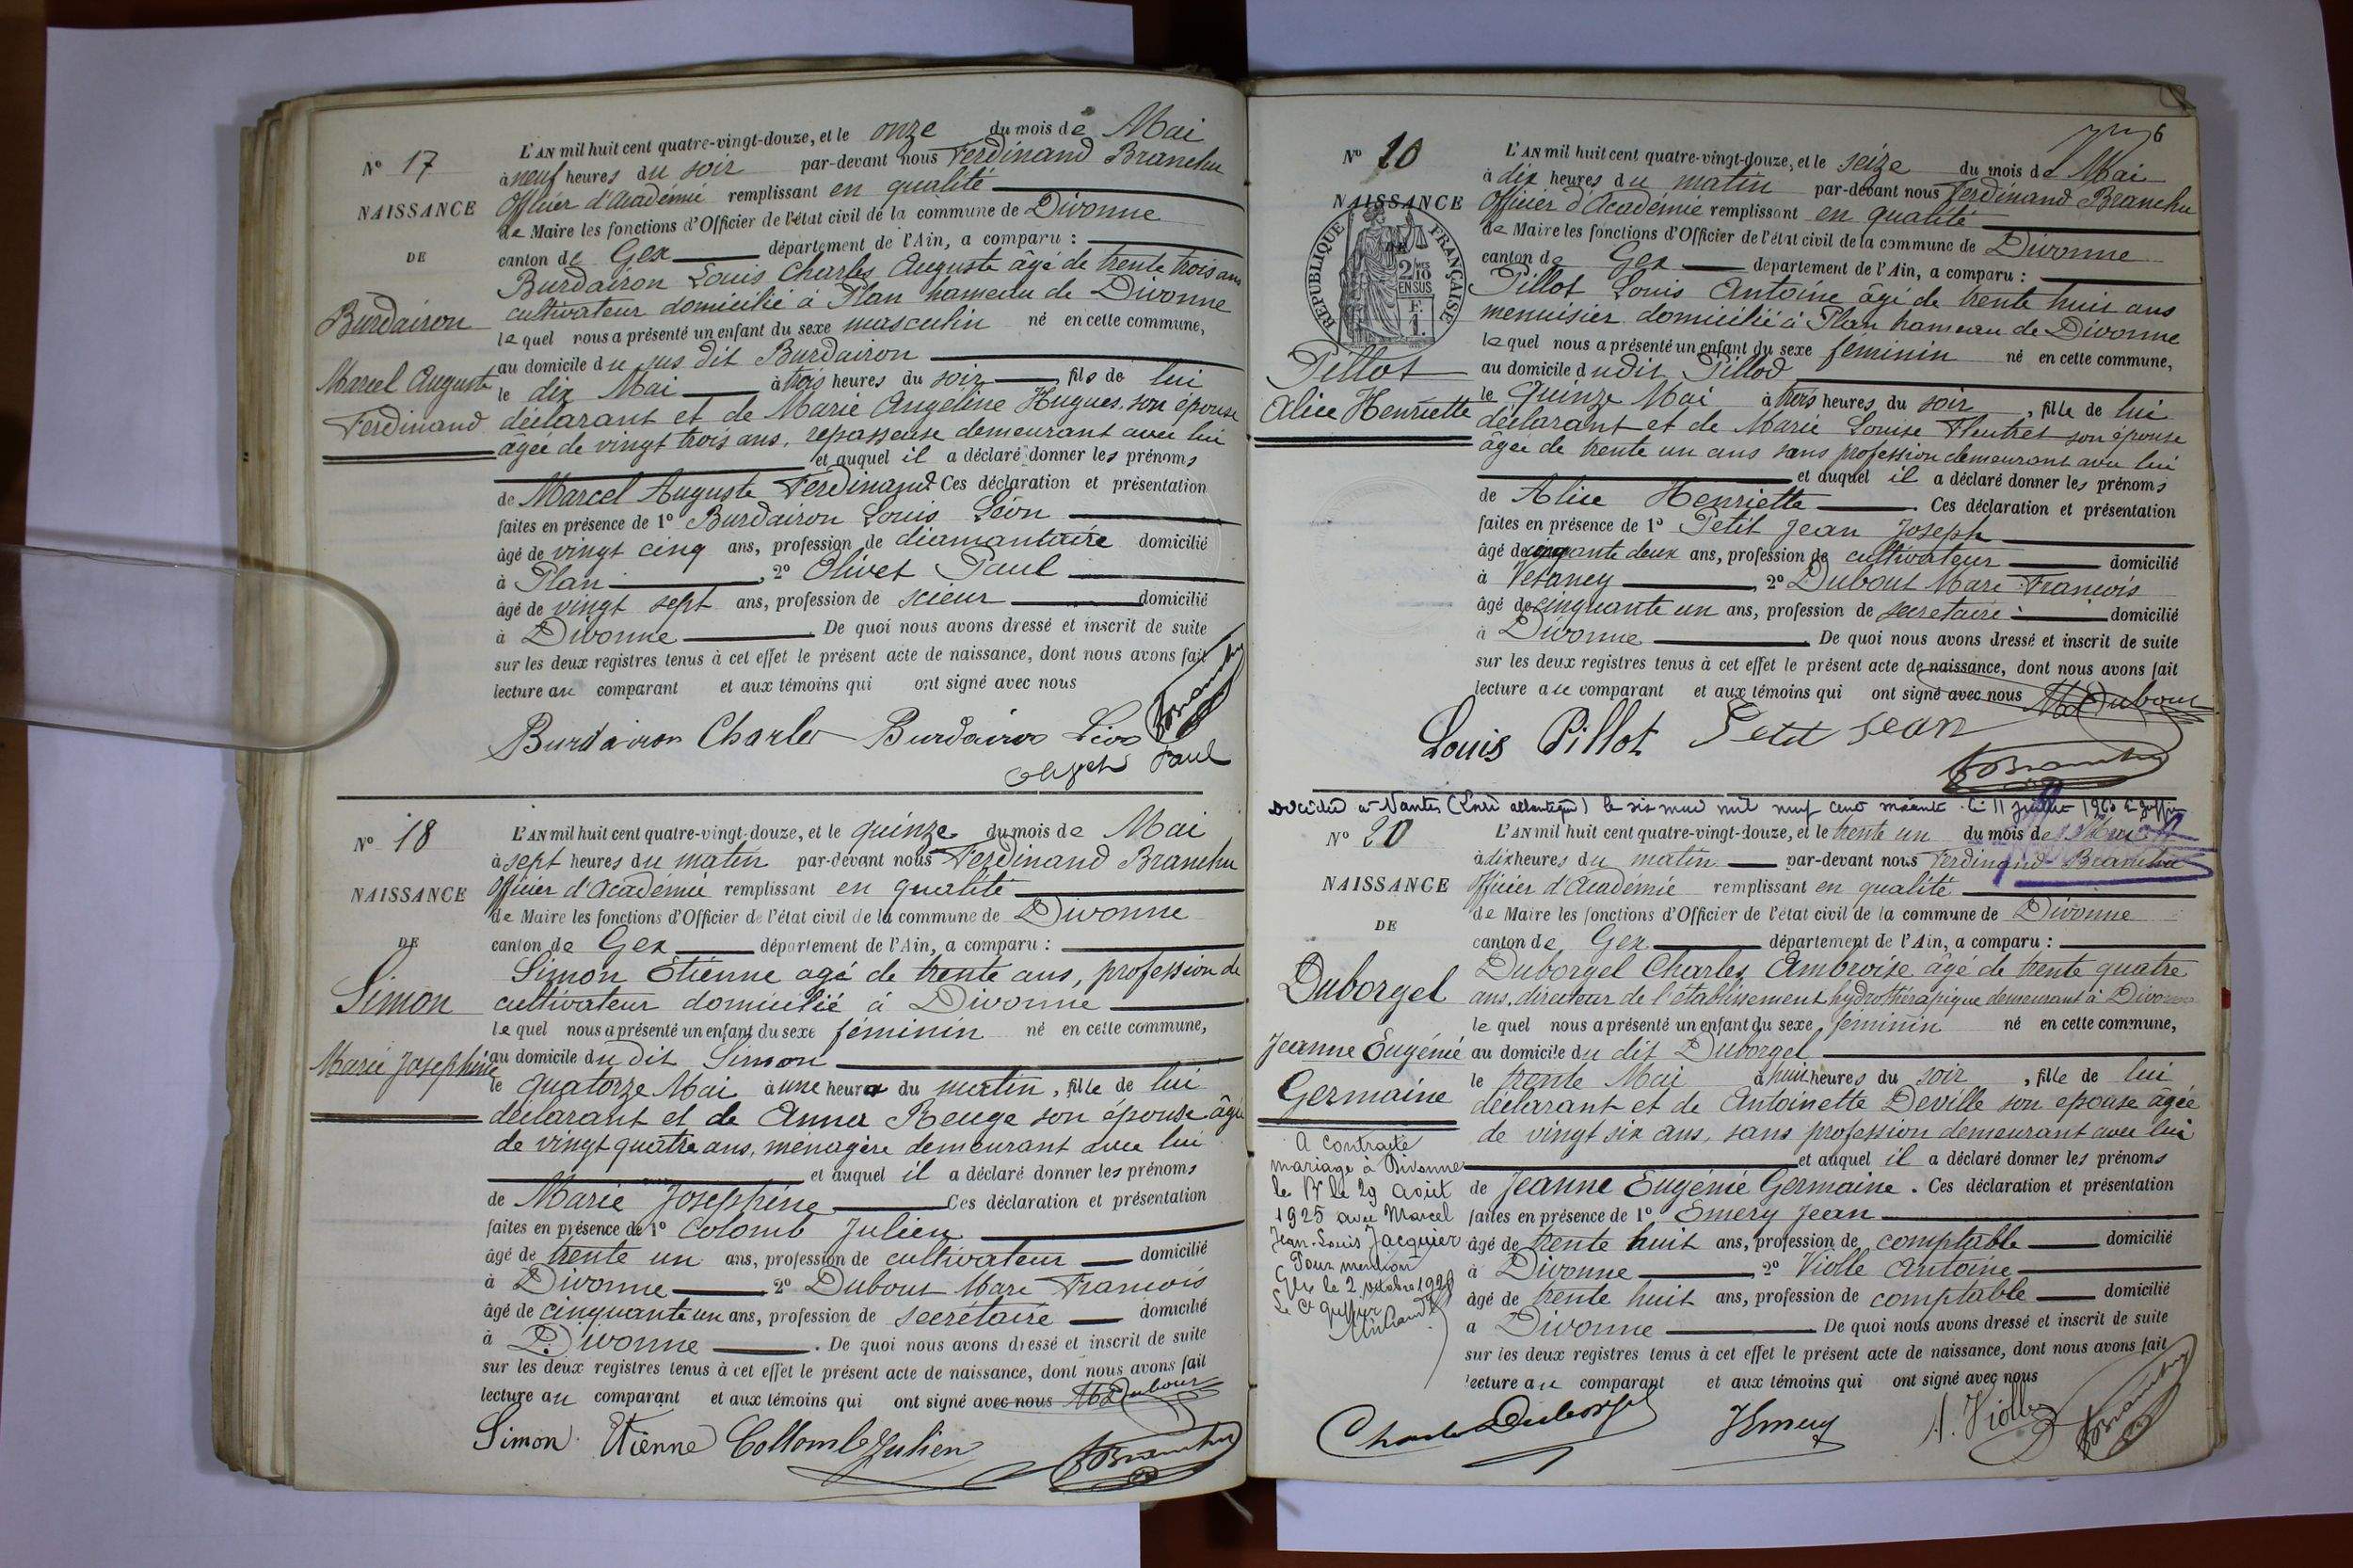 N° 17
NAISSANCE
DE
Burdairon
Marcel Auguste
Ferdinand
L'AN mil huit cent quatre-vingt-douze, et le onze du mois de Mai
à neuf heures du soir par-devant nous Ferdinand Branchu
Officier d'Académie remplissant en qualité
de Maire les fonctions d'Officier de l'état civil de la commune de Divonne
canton de Gex département de l'Ain, a comparu :
Burdairon Louis Charles Auguste âgé de trente trois ans
cultivateur domicilié à Plan hameau de Divonne
lequel nous a présenté un enfant du sexe masculin né en cette commune,
au domicile du sus dit Burdairon
le dix Mai à trois heures du soir, fils de lui
déclarant et de Marie Angeline Hugues, son épouse
âgée de vingt trois ans, repasseuse demeurant avec lui
et auquel il a déclaré donner les prénoms
de Marcel Auguste Ferdinand. Ces déclaration et présentation
faites en présence de 1° Burdairon Louis Léon
âgé de vingt cinq ans, profession de diamantaire domicilié
à Plan, 2° Olivet Paul
âgé de vingt sept ans, profession de scieur domicilié
à Divonne. De quoi nous avons dressé et inscrit de suite
sur les deux registres tenus à cet effet le présent acte de naissance, dont nous avons fait
lecture au comparant et aux témoins qui ont signé avec nous
Burdairon Charles Burdairon Léon Branchu
Olivet Paul
N° 18
NAISSANCE
DE
Simon
Marie Joséphine
L'AN mil huit cent quatre-vingt-douze, et le quinze du mois de Mai
à sept heures du matin par-devant nous Ferdinand Branchu
Officier d'Académie remplissant en qualité
de Maire les fonctions d'Officier de l'état civil de la commune de Divonne
canton de Gex département de l'Ain, a comparu :
Simon Etienne agé de trente ans, profession de
cultivateur domicilié à Divonne
lequel nous a présenté un enfant du sexe féminin né en cette commune,
au domicile du dit Simon
le quatorze Mai à une heure du matin, fille de lui
déclarant et de Anna Reuge son épouse âgée
de vingt quatre ans, ménagère demeurant avec lui
et auquel il a déclaré donner les prénoms
de Marie Joséphine Ces déclaration et présentation
faites en présence de 1° Colomb Julien
âgé de trente un ans, profession de cultivateur domicilié
à Divonne 2° Dubout Marc François
âgé de cinquante un ans, profession de secrétaire domicilié
à Divonne. De quoi nous avons dressé et inscrit de suite
sur les deux registres tenus à cet effet le présent acte de naissance, dont nous avons fait
lecture au comparant et aux témoins qui ont signé avec nous MF Dubout
Simon Etienne Collomb Julien Branchu
6
N° 20
NAISSANCE
DE
RÉPUBLIQUE FRANÇAISE
2/10 EN SUS
F. 1.
Pillot
Alice Henriette
L'AN mil huit cent quatre-vingt-douze, et le seize du mois de Mai
à dix heures du matin par-devant nous Ferdinand Branchu
Officier d'Académie remplissant en qualité
de Maire les fonctions d'Officier de l'état civil de la commune de Divonne
canton de Gex département de l'Ain, a comparu :
Pillot Louis Antoine âgé de trente huit ans
menuisier domicilié à Plan hameau de Divonne
lequel nous a présenté un enfant du sexe féminin né en cette commune,
au domicile dudit Pillod
le Quinze Mai à trois heures du soir, fille de lui
déclarant et de Marie Louise Fleutret son épouse
âgée de trente un ans sans profession demeurant avec lui
et auquel il a déclaré donner les prénoms
de Alice Henriette. Ces déclaration et présentation
faites en présence de 1° Petit Jean Joseph
âgé de cinquante deux ans, profession de cultivateur domicilié
à Vesancy, 2° Dubout Marc François
âgé de cinquante un ans, profession de secretaire domicilié
à Divonne. De quoi nous avons dressé et inscrit de suite
sur les deux registres tenus à cet effet le présent acte de naissance, dont nous avons fait
lecture au comparant et aux témoins qui ont signé avec nous MF Dubout
Louis Pillot Petit Jean
Branchu
Décédée à Nantes (Loire atlantique) le six mai mil neuf cent soixante le 11 juillet
N° 20
NAISSANCE
DE
Duborgel
Jeanne Eugénie
Germaine
A contracté
mariage à Divonne
le 29 août
1925 avec Marcel
Jean-Louis Jacquier
Pour mention
Gex le 2 octobre
Le Cs Greffier
L'AN mil huit cent quatre-vingt-douze, et le trente un du mois de Mai
à dix heures du matin par-devant nous Ferdinand Branchu
Officier d'Académie remplissant en qualité
de Maire les fonctions d'Officier de l'état civil de la commune de Divonne
canton de Gex département de l'Ain, a comparu :
Duborgel Charles Ambroise âgé de trente quatre
ans, directeur de l'établissement hydrothérapique demeurant à Divonne
lequel nous a présenté un enfant du sexe féminin né en cette commune,
au domicile du dit Duborgel
le trente Mai à huit heures du soir, fille de lui
déclarant et de Antoinette Deville son épouse âgée
de vingt six ans, sans profession demeurant avec lui
et auquel il a déclaré donner les prénoms
de Jeanne Eugénie Germaine. Ces déclaration et présentation
faites en présence de 1° Emery Jean
âgé de trente huit ans, profession de comptable domicilié
à Divonne, 2° Violle Antoine
âgé de trente huit ans, profession de comptable domicilié
à Divonne De quoi nous avons dressé et inscrit de suite
sur les deux registres tenus à cet effet le présent acte de naissance, dont nous avons fait
lecture au comparant et aux témoins qui ont signé avec nous
Charles Duborgel JEmery A. Violle Branchu